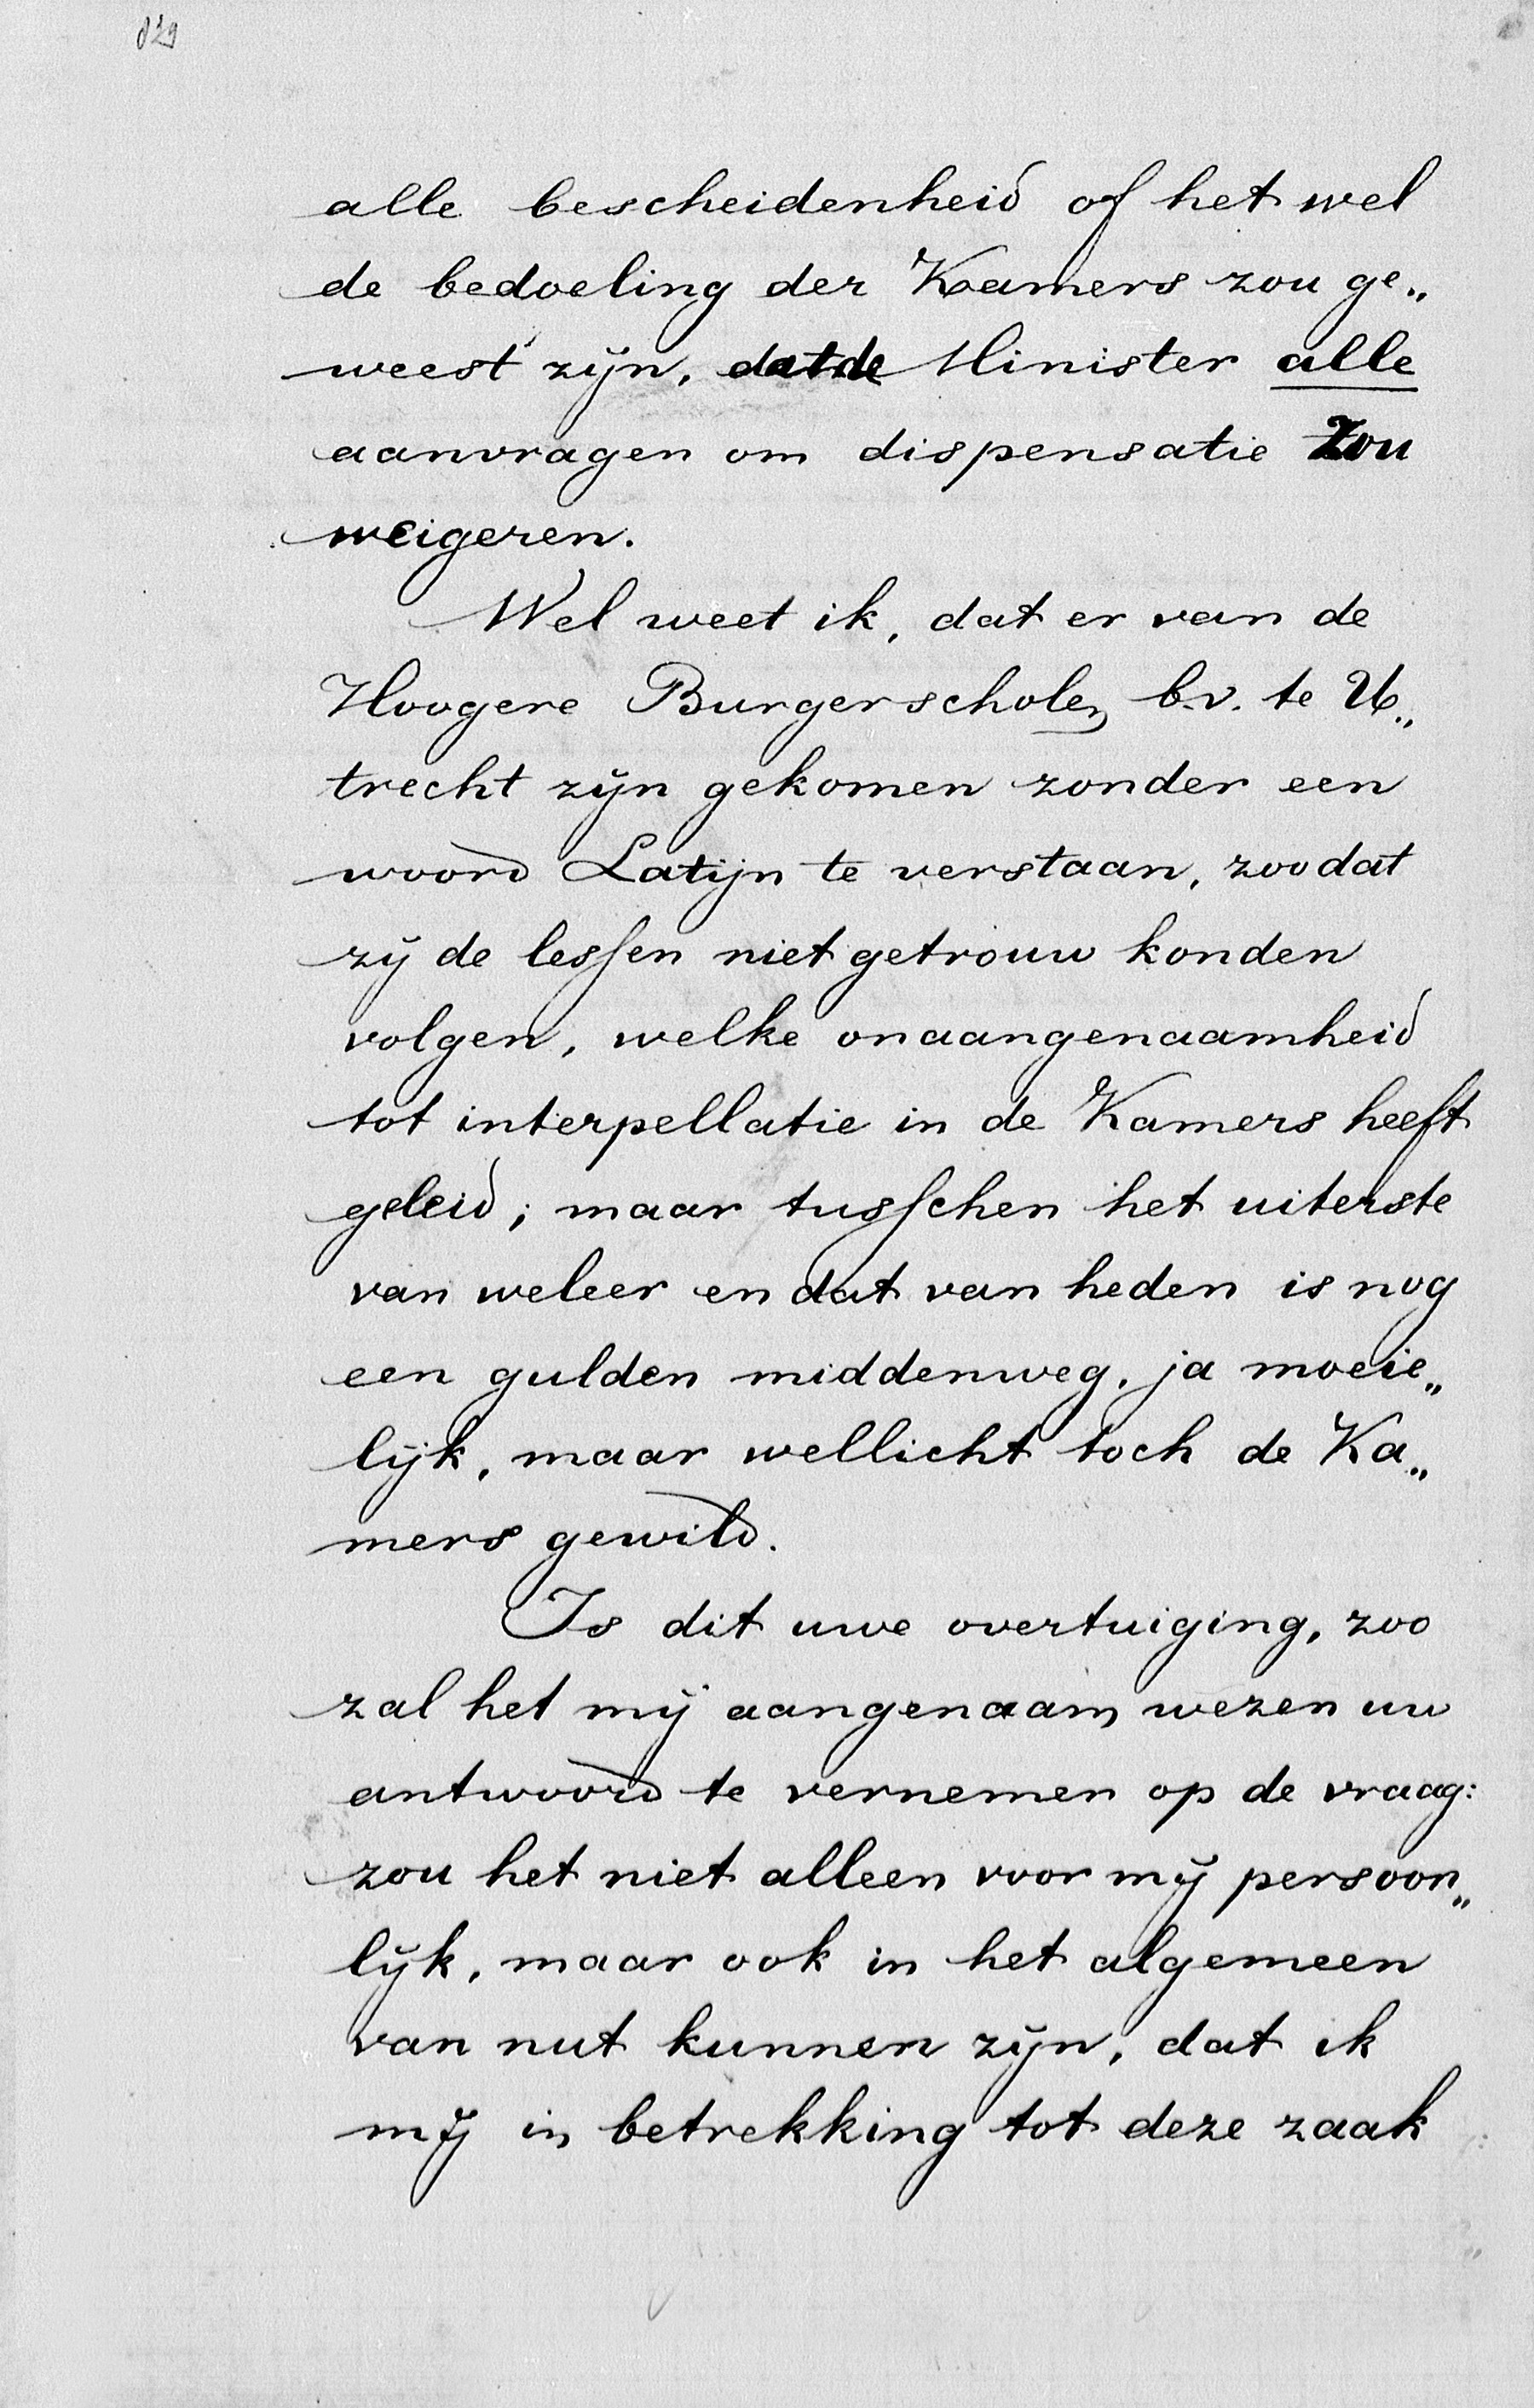 829
alle bescheidenheid of het wel
de bedoeling der Kamers zou ge„
weest zijn, dat de Minister alle
aanvragen om dispensatie zou
weigeren.
Wel weet ik, dat er van de
Hoogere Burgerscholen b.v. te U„
trecht zijn gekomen zonder een
woord Latijn te verstaan, zoodat
zij de lessen niet getrouw konden
volgen, welke onaangenaamheid
tot interpellatie in de Kamers heeft
geleid; maar tusschen het uiterste
van weleer en dat van heden is nog
een gulden middenweg, ja moeie„
lijk, maar wellicht toch de Ka„
mers gewild.
Is dit uwe overtuiging, zoo
zal het mij aangenaam wezen uw
antwoord te vernemen op de vraag:
zou het niet alleen voor mij persoon„
lijk, maar ook in het algemeen
van nut kunnen zijn, dat ik
mij in betrekking tot deze zaak